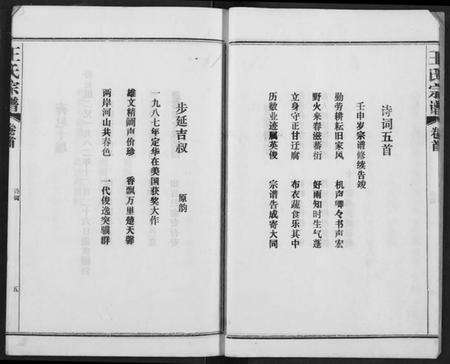 王氏宗谱 卷首
诗词五首
壬申岁宗谱修续告竣
勤劳耕耘旧家风 机声唧々书声宏
野火来春滋蕃衍 好雨知时生气蓬
立身守正甘迂腐 布衣蔬食乐其中
历叙业迹属英俊 宗谱告成寄大同
步延吉叔 原韵
一九八七年定华在美国获奖大作
雄文精阐声价珍 香飘万里楚天馨
两岸河山共春色 一代俊逸突骥群
王氏宗谱 卷首 诗词 五